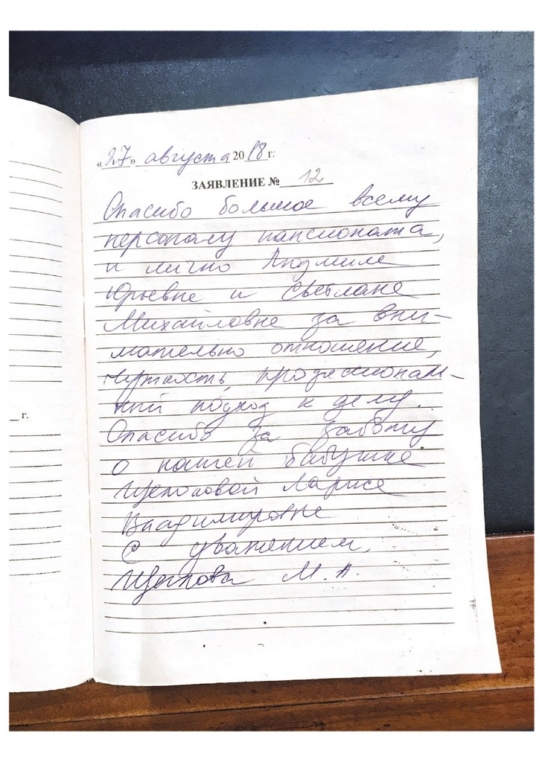 «27» августа 2018 г.
ЗАЯВЛЕНИЕ № 12
Спасибо большое всему
персоналу пансионата,
и лично Людмиле
Юрьевне и Светлане
Михайловне за вни-
мательно отношение,
чуткость, профессионал-
ный подход к делу.
Спасибо за заботу
о нашей бабушке
Щелоковой Ларисе
Владимировне
С уважением,
М. А.
г.